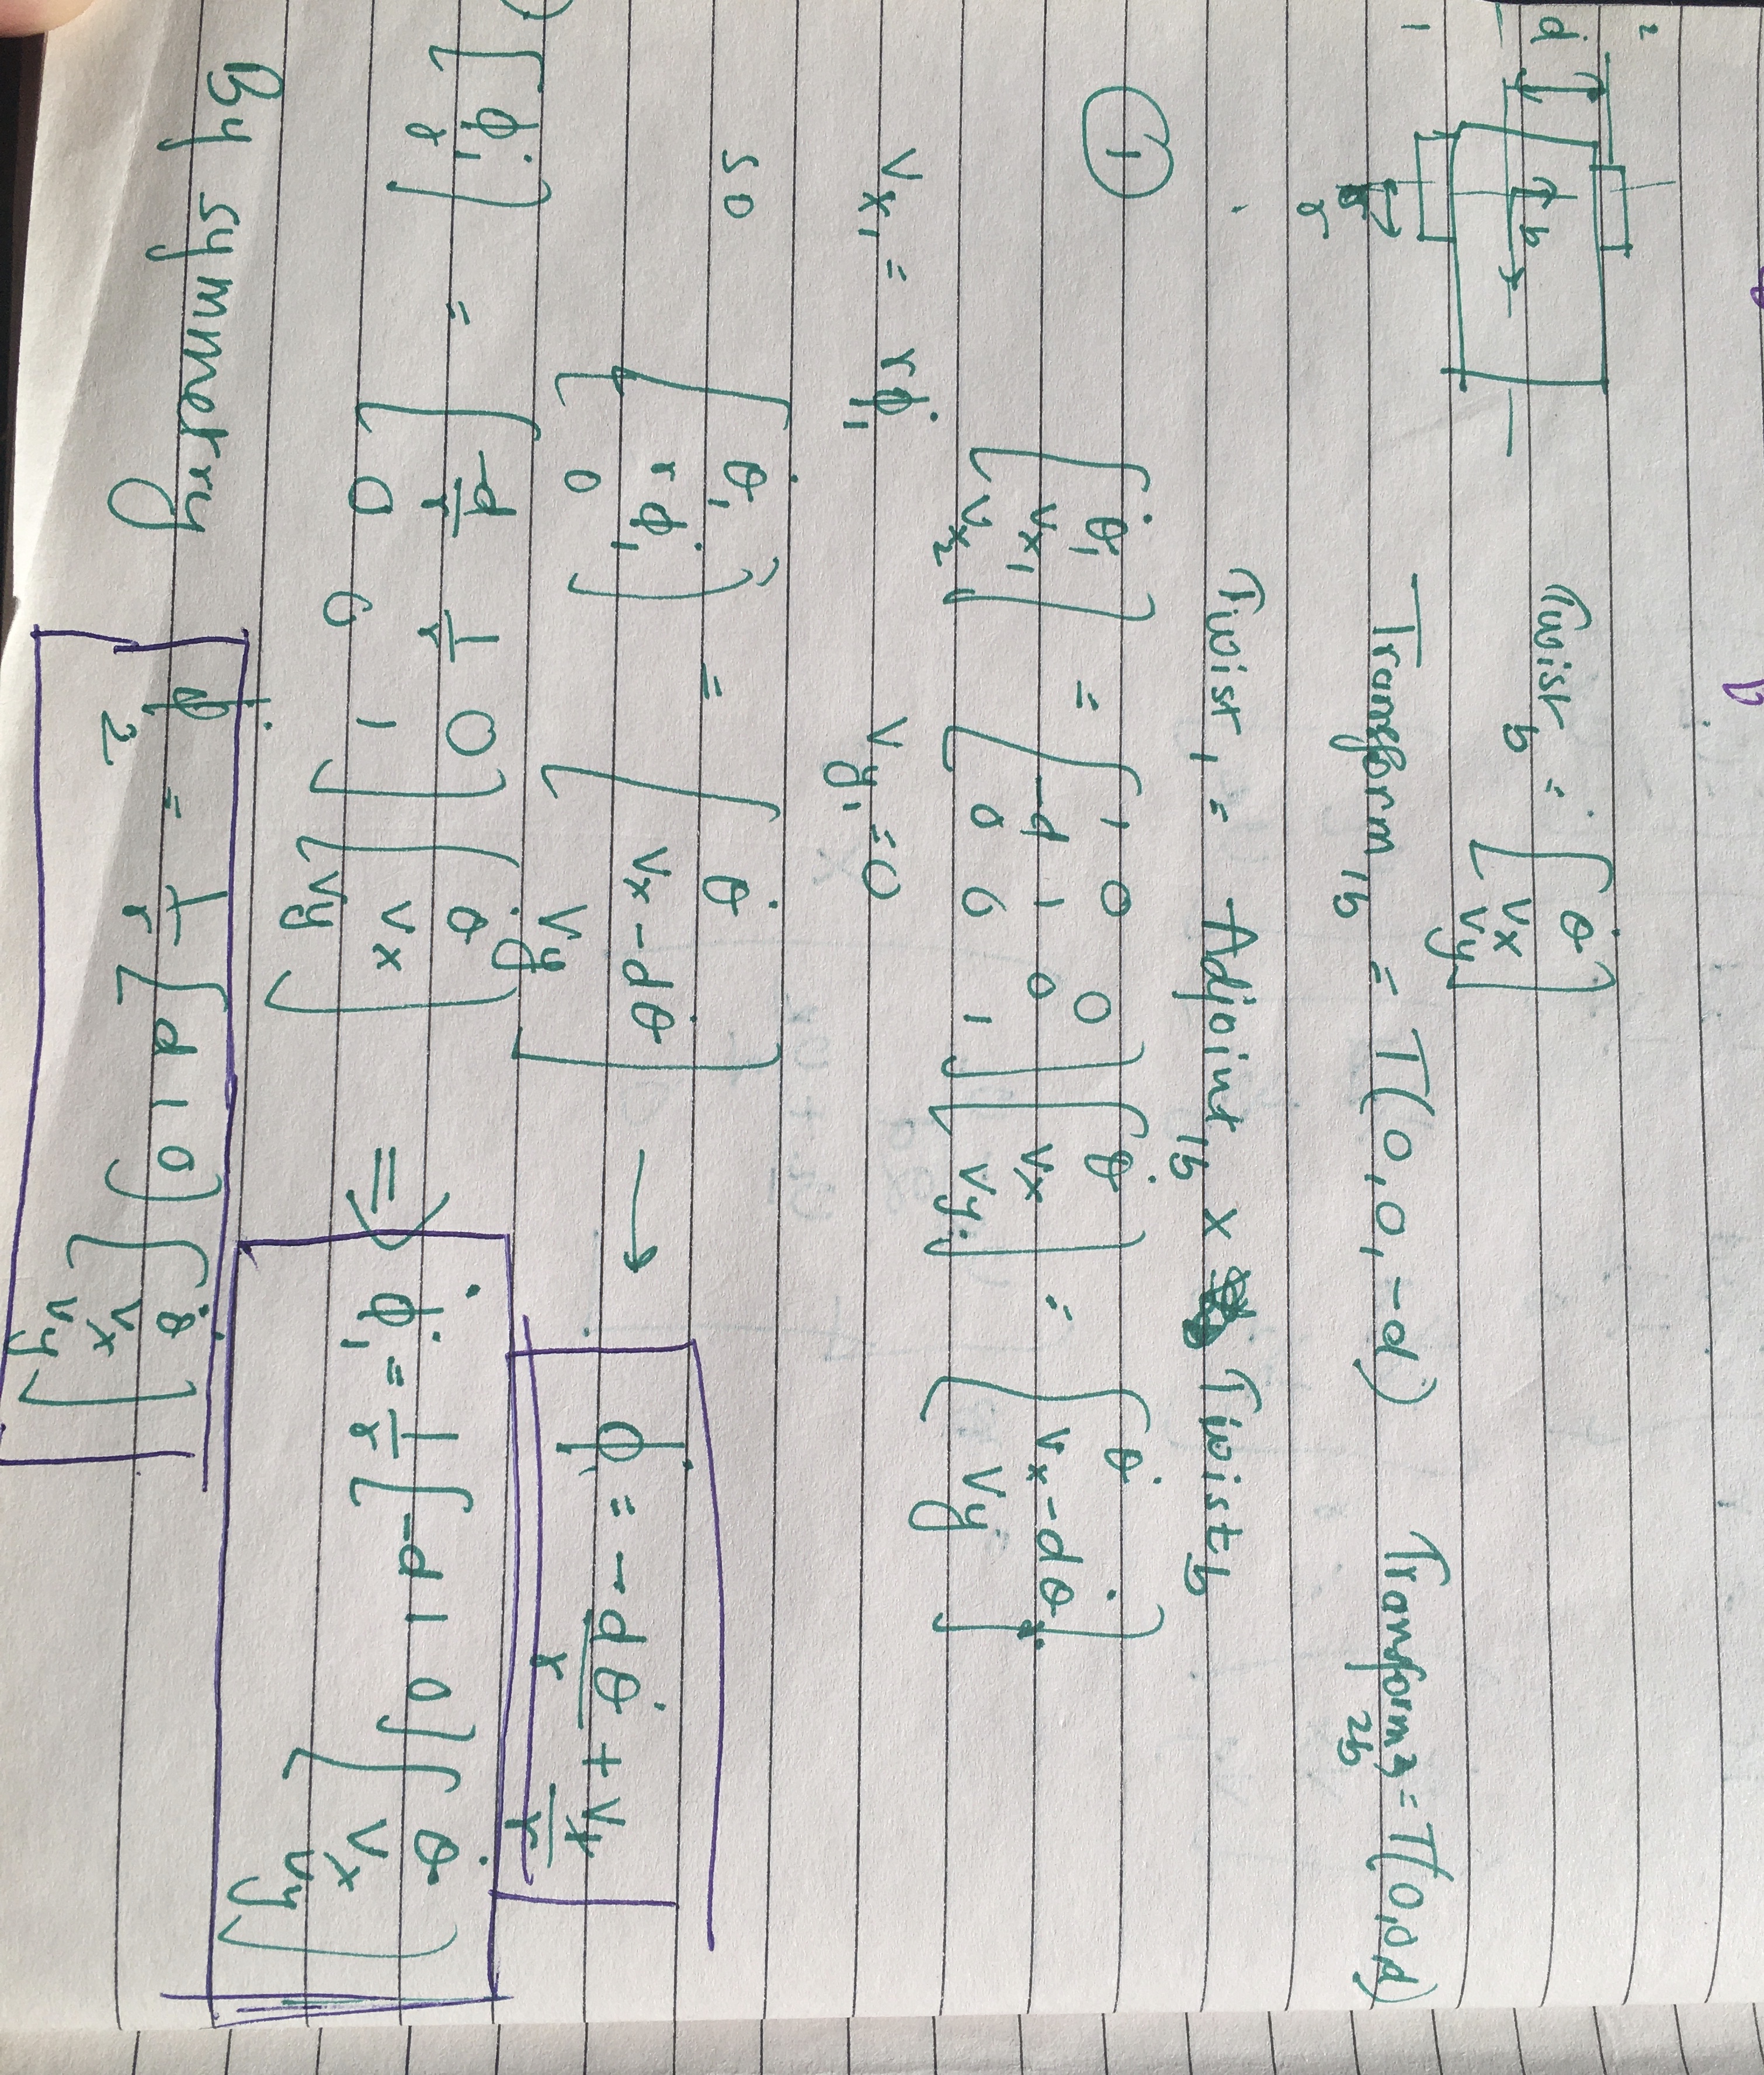 2
d
1
b
r
Twist_b = [θ̇ vx vy]
Transform_1b = T(0,0,-d) Transform_2b = T(0,0,d)
Twist_1 = Adjoint_1b x Twist_b
① [θ̇_1 vx_1 vx_2] = [1 0 0; -d 1 0; 0 0 1] [θ̇ vx vy] = [θ̇ vx-dθ̇ vy]
vx_1 = rϕ̇_1 vy_1 = 0
so [θ̇_1 rϕ̇_1 0] = [θ̇ vx-dθ̇ vy] → ϕ̇_1 = -dθ̇/r + vx/r
[ϕ̇_1 0] = [-d/r 1/r 0; 0 0 1] [θ̇ vx vy] ⇒ ϕ̇_1 = 1/r [-d 1 0] [θ̇ vx vy]
By symmetry ϕ̇_2 = 1/r [d 1 0] [θ̇ vx vy]